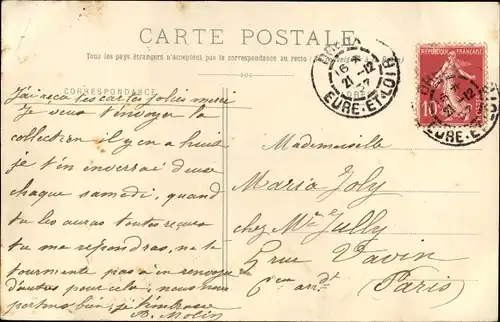 CARTE POSTALE
Tous les pays étrangers n'acceptent pas la correspondance au recto
CORRESPONDANCE
EURE-ET-LOIR
21-12
REPUBLIQUE FRANÇAISE
10
EURE-ET-LOIR
J'ai reçu les cartes jolies merci
Je veux t'envoyer la
collection il y en a huit
je t'en inverrai deux
chaque samedi, quand
tu les auras toutes reçues
tu me répondras, ne te
tourmente pas à en renvoyer
d'autres pour cela, nous nous
portons bien, je t'embrasse
B. Molin
Mademoiselle
Maria Joly
chez Mme Jully
5 rue Vavin
6em arrdt
(Paris)